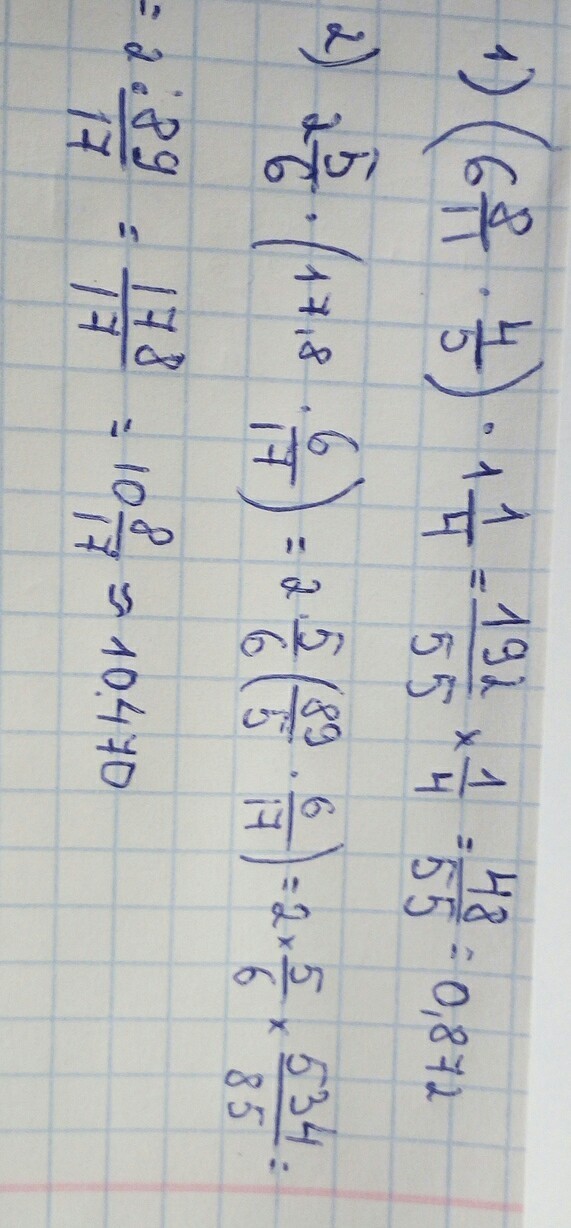 1) (6 8/11 · 4/5) · 1 1/4 = 192/55 × 1/4 = 48/55 = 0,872
2) 2 5/6 · (17,8 · 6/17) = 2 · 5/6 (89/5 · 6/17) = 2 × 5/6 × 534/85 =
= 2 · 89/17 = 178/17 = 10 8/17 ≈ 10.470